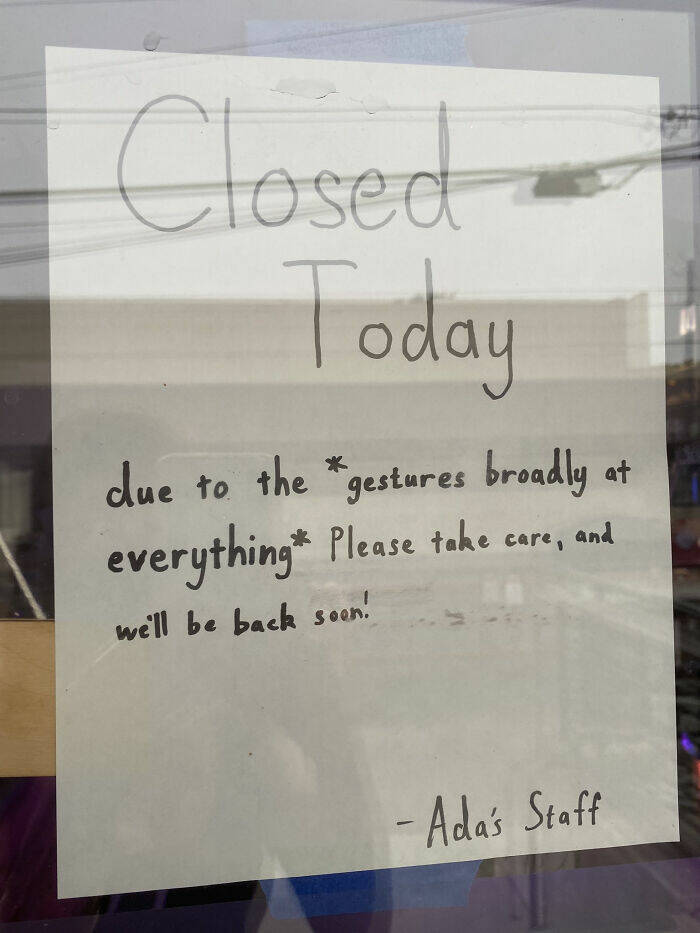 Closed
Today
due to the *gestures broadly at
everything* Please take care, and
we'll be back soon!
- Ada's Staff